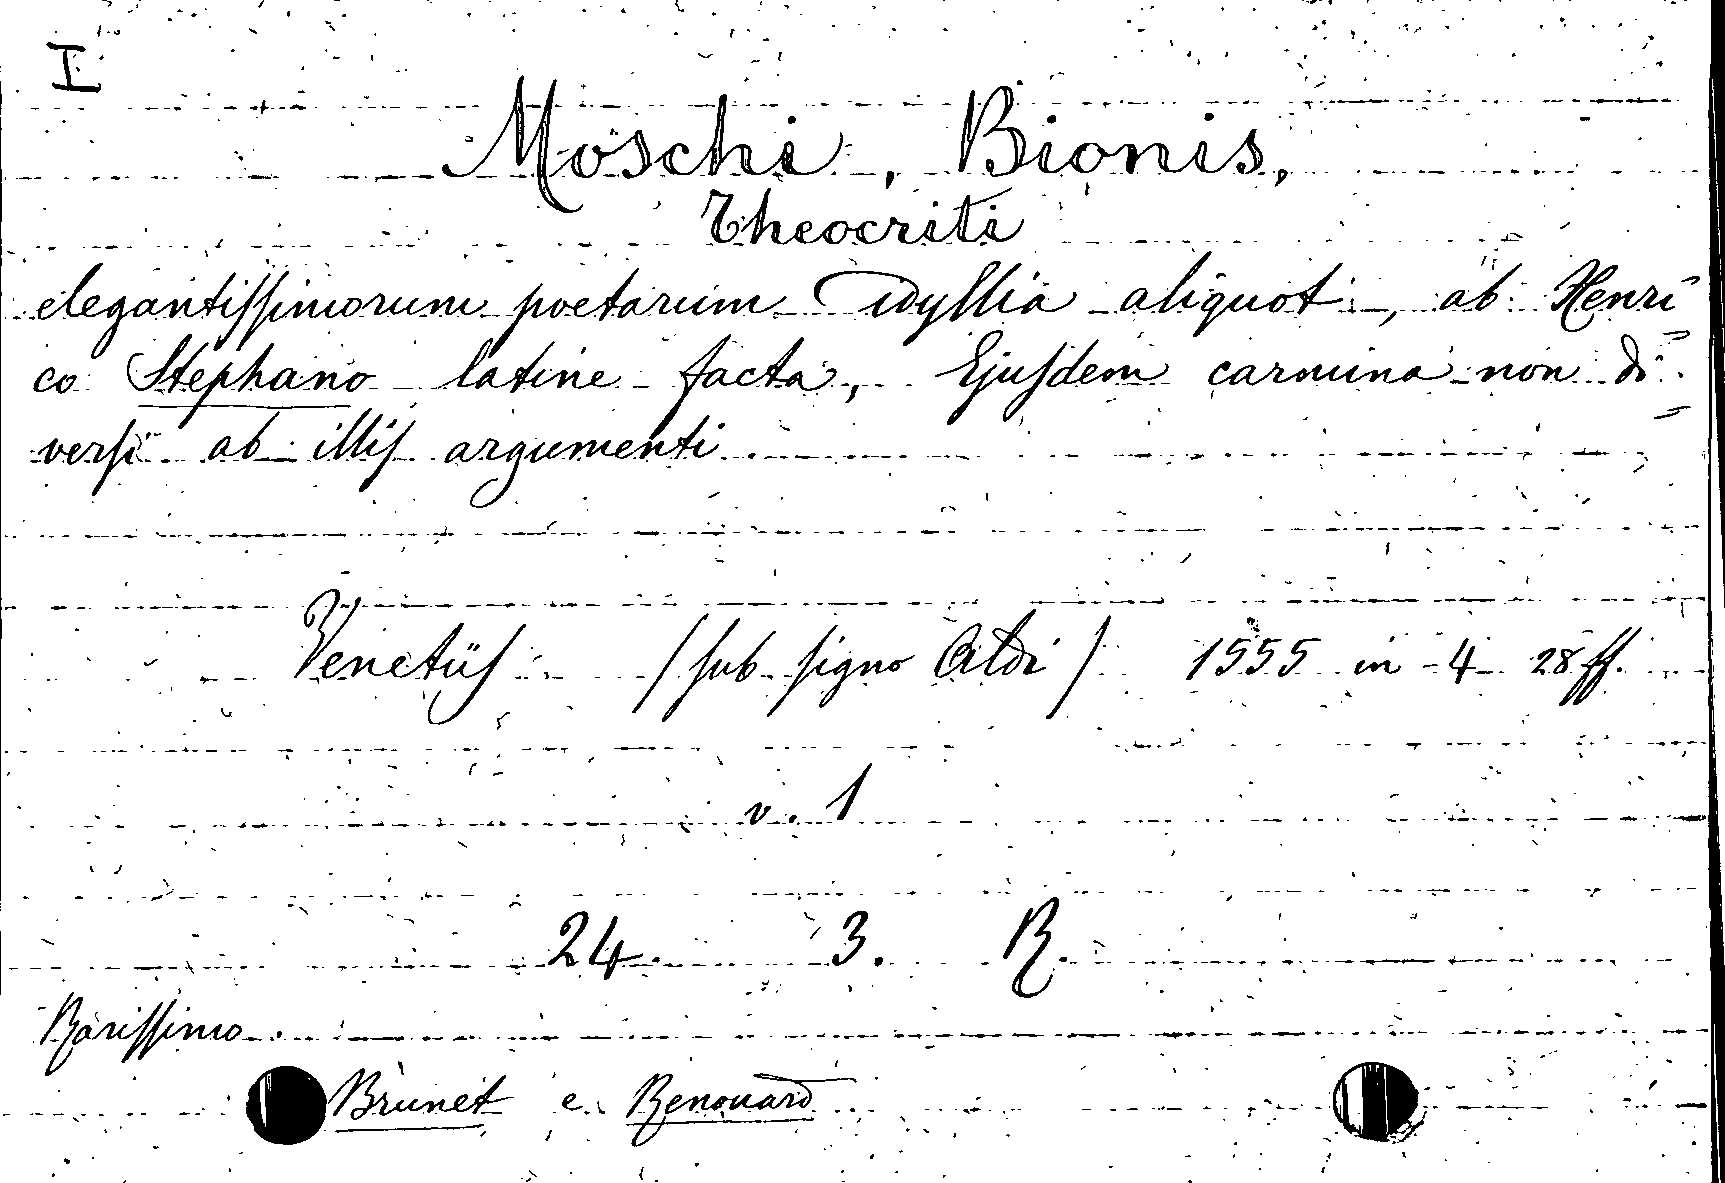 I
Moschi, Bionis,
Theocriti
elegantissimorum poetarum idyllia aliquot, ab Henri
co Stephano latine facta, Ejusdem carmina non di=
versi ab illis argumenti
Venetiis (sub signo Aldi) 1555 in 4 28 ff.
v. 1
24. 3. R.
Rarissimo.
Brunet e Renouard